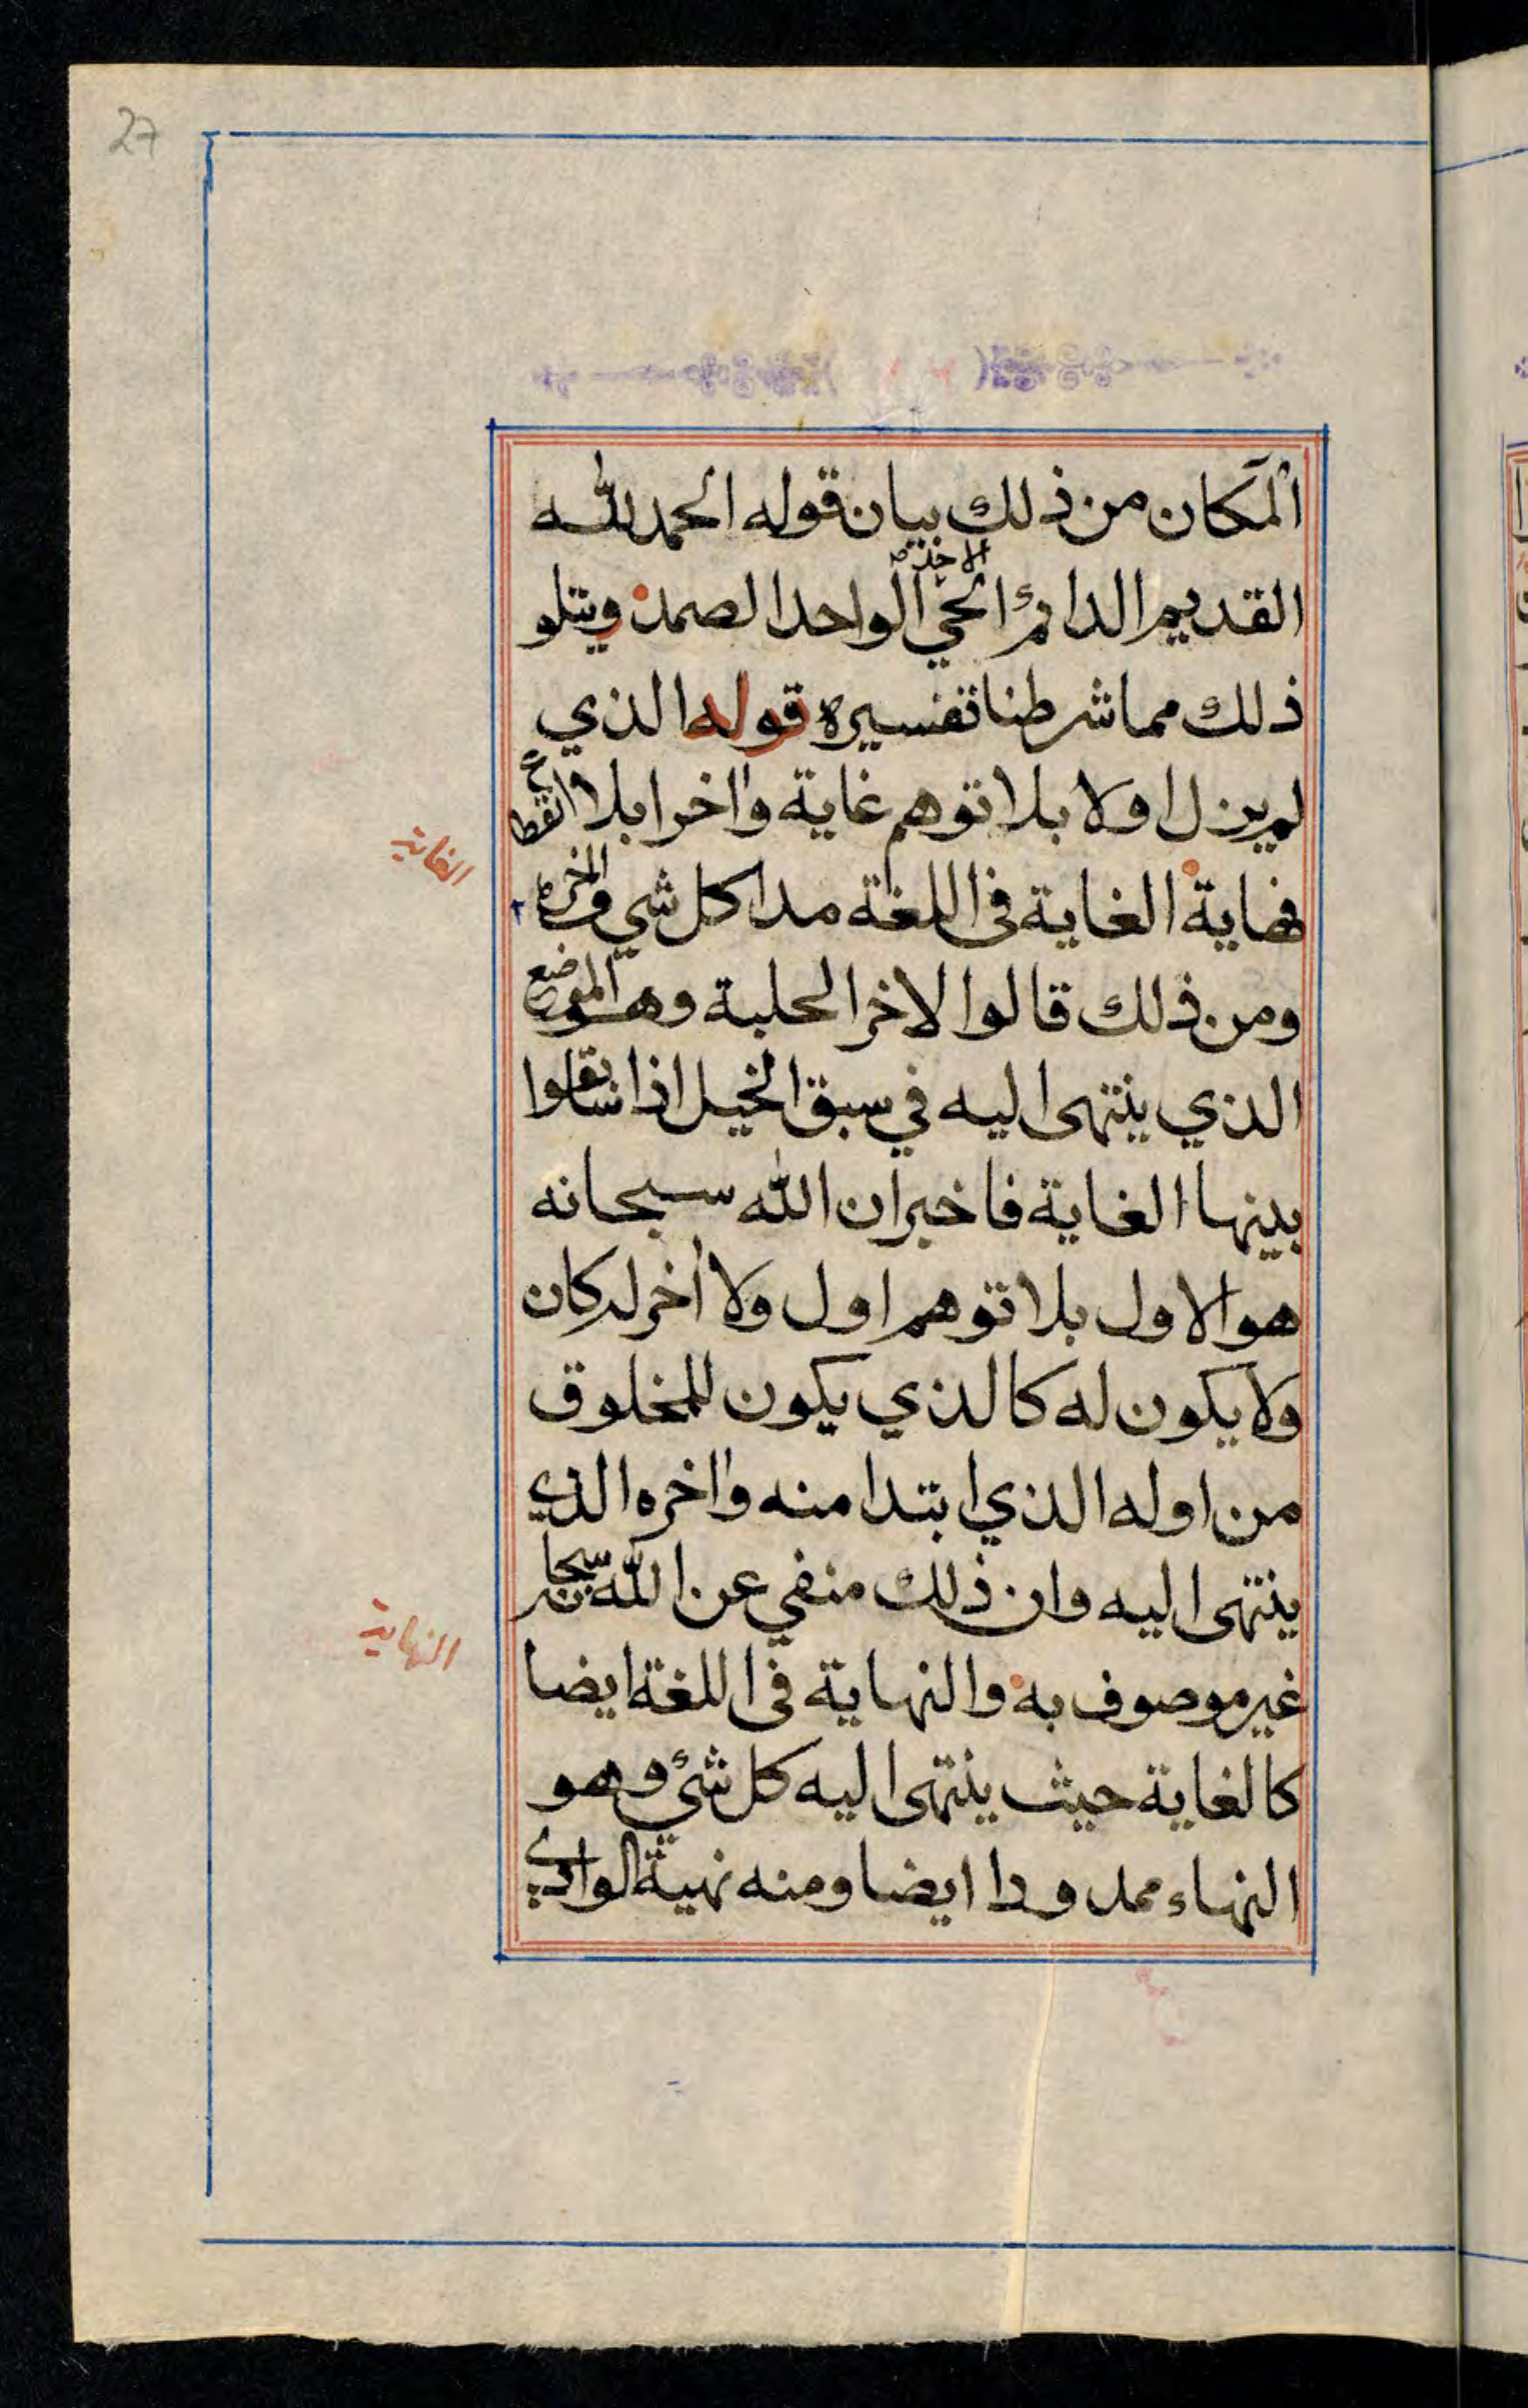 27
المكان من ذلك بيان قوله الحمد لله
القديم الدائم الحي الواحد الصمد ويتلو
ذلك مما شرطنا تفسيره قوله الذي
لم يزل اولا بلا توهم غاية واخرا بلا انقطاع
الغاية
نهاية الغاية في اللغة مدا كل شي واخره
ومن ذلك قالوا لاخر الحلبة وهو الموضع
الذي ينتهى اليه في سبق الخيل اذا سابقوا
بينها الغاية فاخبر ان الله سبحانه
هو الاول بلا توهم اول ولا اخر له كان
ولا يكون له كالذي يكون للمخلوق
من اوله الذي ابتدا منه واخره الذي
ينتهى اليه وان ذلك منفي عن الله سبحانه
النهاية
غير موصوف به والنهاية في اللغة ايضا
كالغاية حيث ينتهى اليه كل شيء وهو
النهاء ممدودا ايضا ومنه نهية الوادي